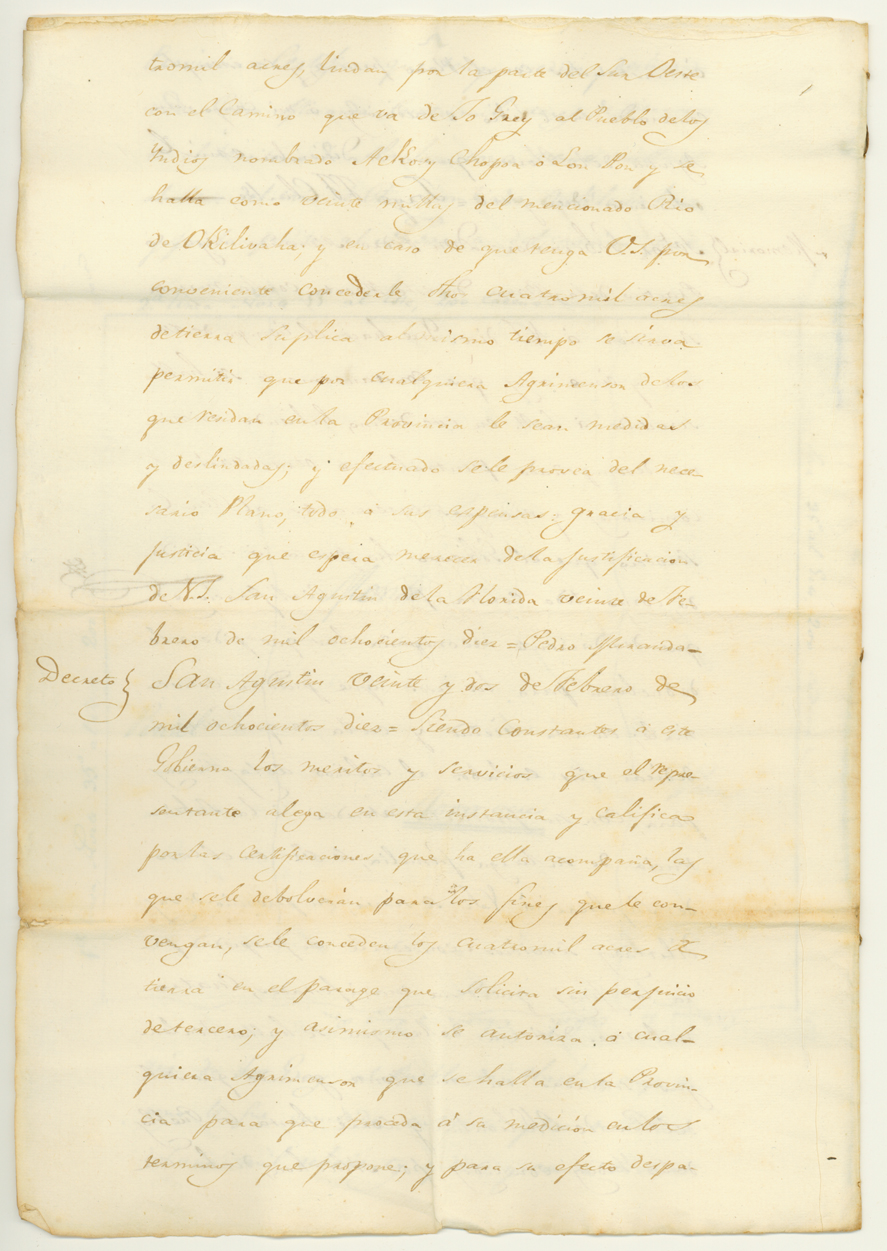 tromil acres, lindan por la parte del Sur Oeste
con el Camino que va de To Grey al Pueblo delos
Yndios nombrado Acko y Chopon ó Lon Pon y se
halla como veinte millas del mencionado Rio
de Okêlivaha; y en caso de que tenga V.S. por
conveniente concederle dhos cuatromil acres
de tierra suplica al mismo tiempo se sirva
permitir que por cualquiera Agrimensor delos
que residan en la Provincia le sean medidas
y deslindadas; y efectuado sele provea del nece-
sario Plano, todo á sus espensas = gracia y
justicia que espera merecer dela justificacion
de V.S. San Agustin dela Florida veinte de Fe-
brero de mil ochocientos diez = Pedro Miranda =
Decreto } San Agustin veinte y dos de Febrero de
mil ochocientos diez = Siendo constantes á este
Gobierno los meritos y servicios que el repre-
sentante alega en esta instancia y califica
por las certificaciones que ha ella acompaña, las
que sele debolverán para los fines que le con-
vengan, sele conceden los cuatromil acres de
tierra en el parage que solicita sin perjuicio
de tercero; y asimismo se autoriza á cual-
quiera Agrimensor que se halla en la Provin-
cia para que proceda á su medición en los
terminos que propone; y para su efecto despa-